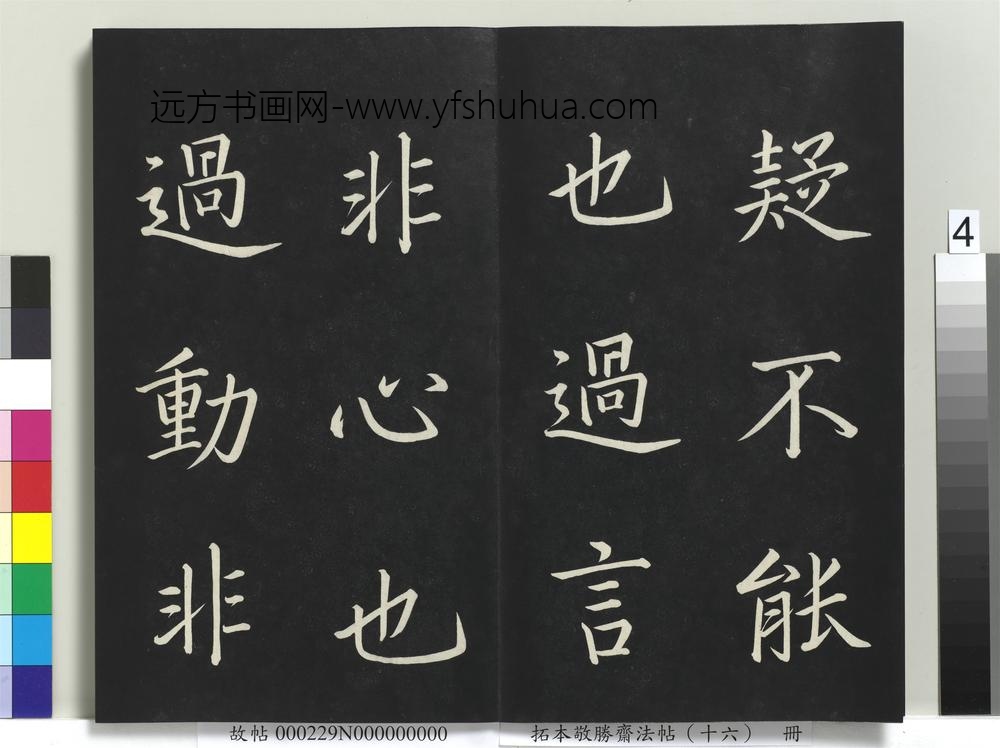 远方书画网-www.yfshuhua.com
疑不能
也過言
非心也
過動非
4
故帖 000229N000000000
拓本敬勝齋法帖（十六） 冊